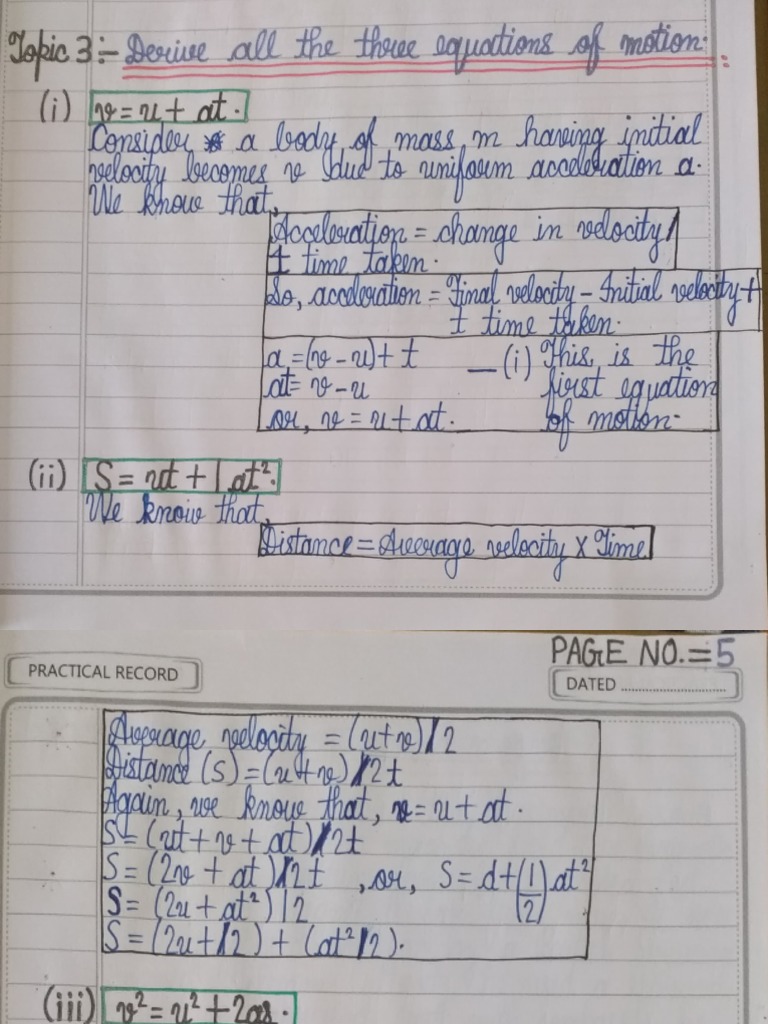 Topic 3:- Derive all the three equations of motion.
(i) v = u + at.
Consider a body of mass m having initial
velocity becomes v due to uniform acceleration a.
We know that,
Acceleration = change in velocity/
t time taken.
So, acceleration = Final velocity - Initial velocity +
t time taken.
a = (v - u) + t — (i) This, is the
at = v - u first equation
or, v = u + at. of motion.
(ii) S = ut + 1 at².
We know that,
Distance = Average velocity × Time
PRACTICAL RECORD
PAGE NO. = 5
DATED
Average velocity = (u+v)/2
Distance (S) = (u+v)/2t
Again, we know that, v = u + at.
S = (ut + v + at)/2t
S = (2v + at)/2t , or, S = d + (1/2) at²
S = (2u + at²)/2
S = (2u+/2) + (at²/2).
(iii) v² = u² + 2as.